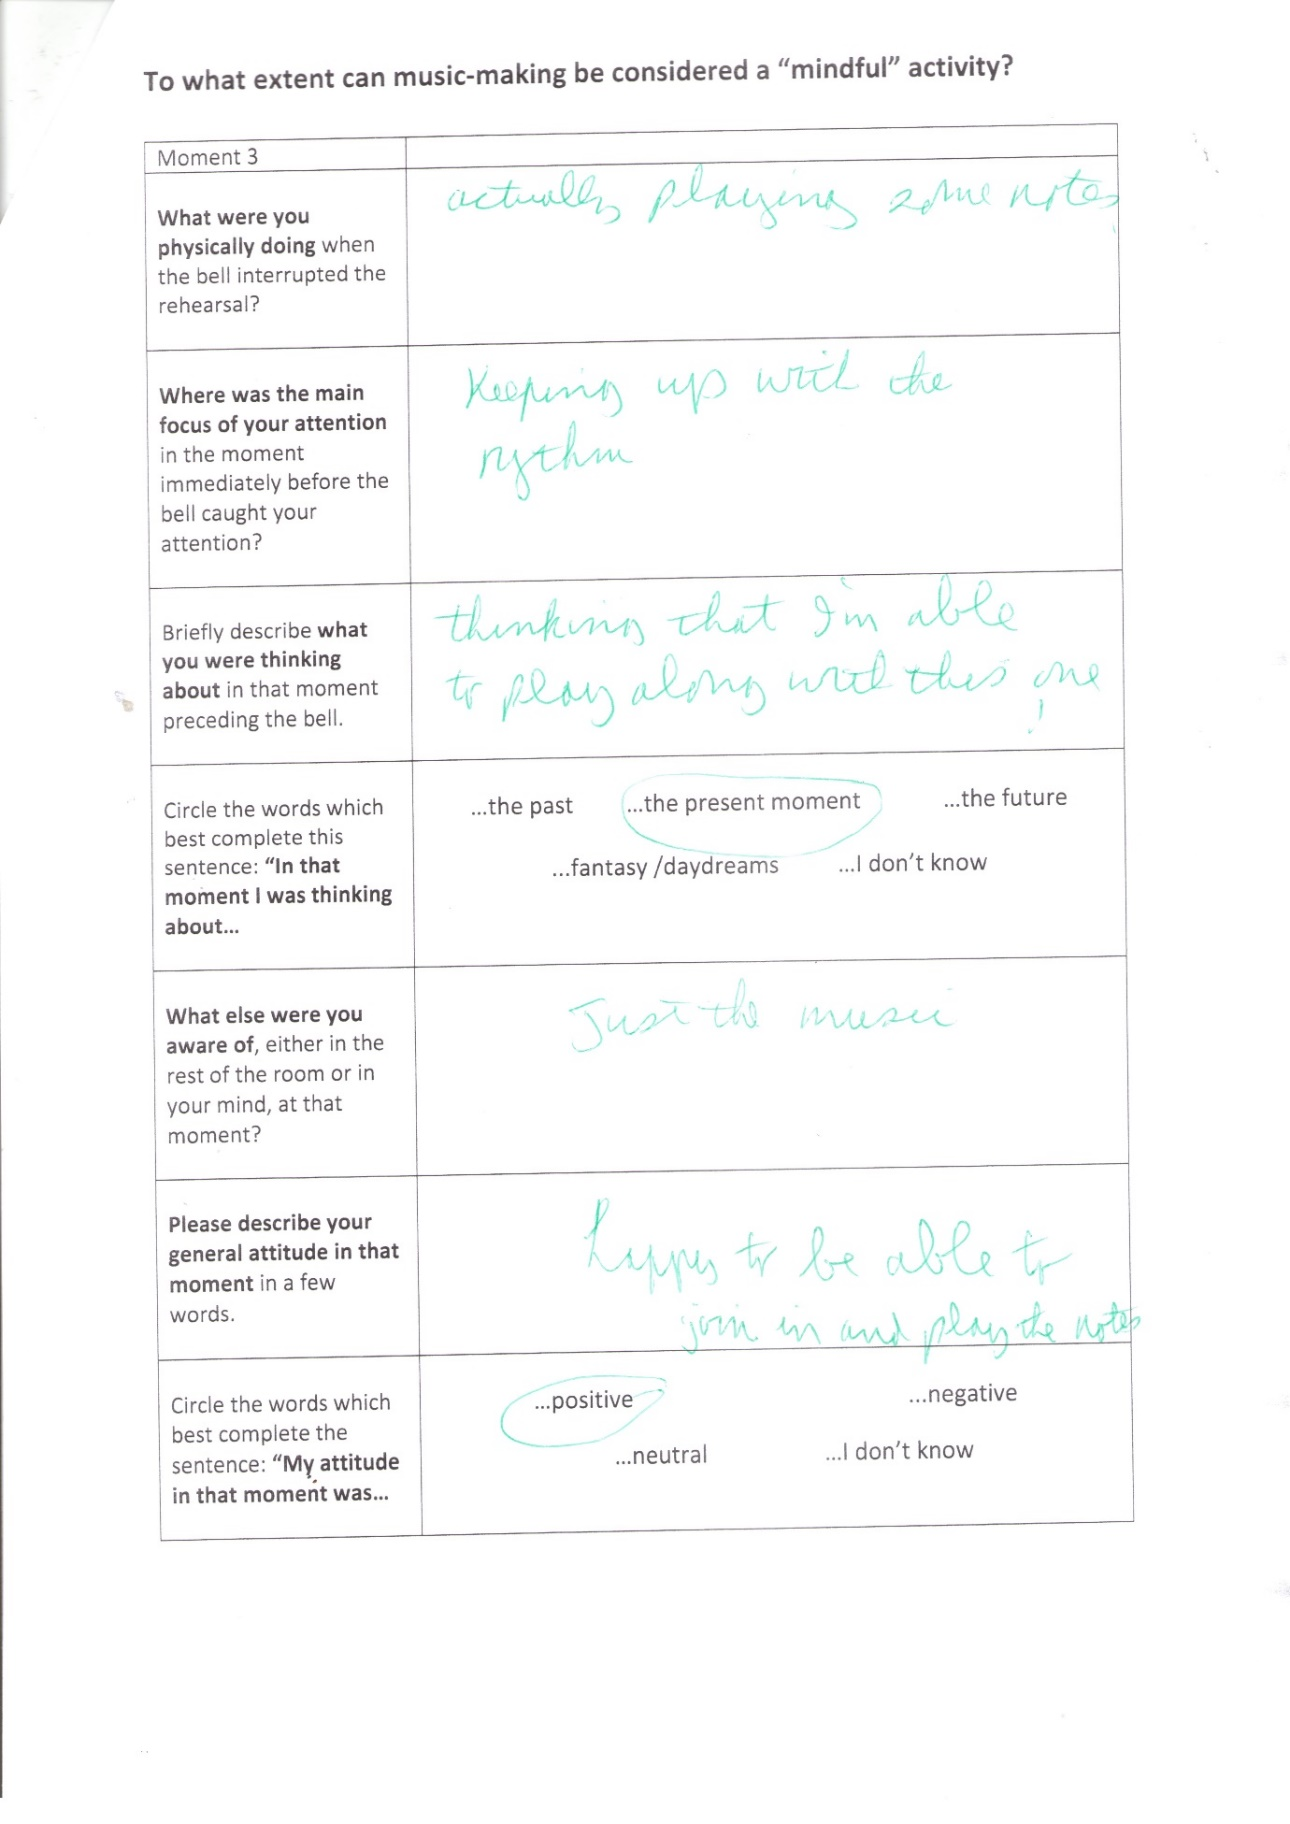 To what extent can music-making be considered a “mindful” activity?
Moment 3
What were you
physically doing when
the bell interrupted the
rehearsal?
actually playing some notes!
Where was the main
focus of your attention
in the moment
immediately before the
bell caught your
attention?
Keeping up with the
rythm
Briefly describe what
you were thinking
about in that moment
preceding the bell.
thinking that I'm able
to play along with this one!
Circle the words which
best complete this
sentence: “In that
moment I was thinking
about...
...the past ...the present moment ...the future
...fantasy /daydreams ...I don’t know
What else were you
aware of, either in the
rest of the room or in
your mind, at that
moment?
Just the music
Please describe your
general attitude in that
moment in a few
words.
happy to be able to
join in and play the notes
Circle the words which
best complete the
sentence: “My attitude
in that moment was...
...positive ...negative
...neutral ...I don’t know